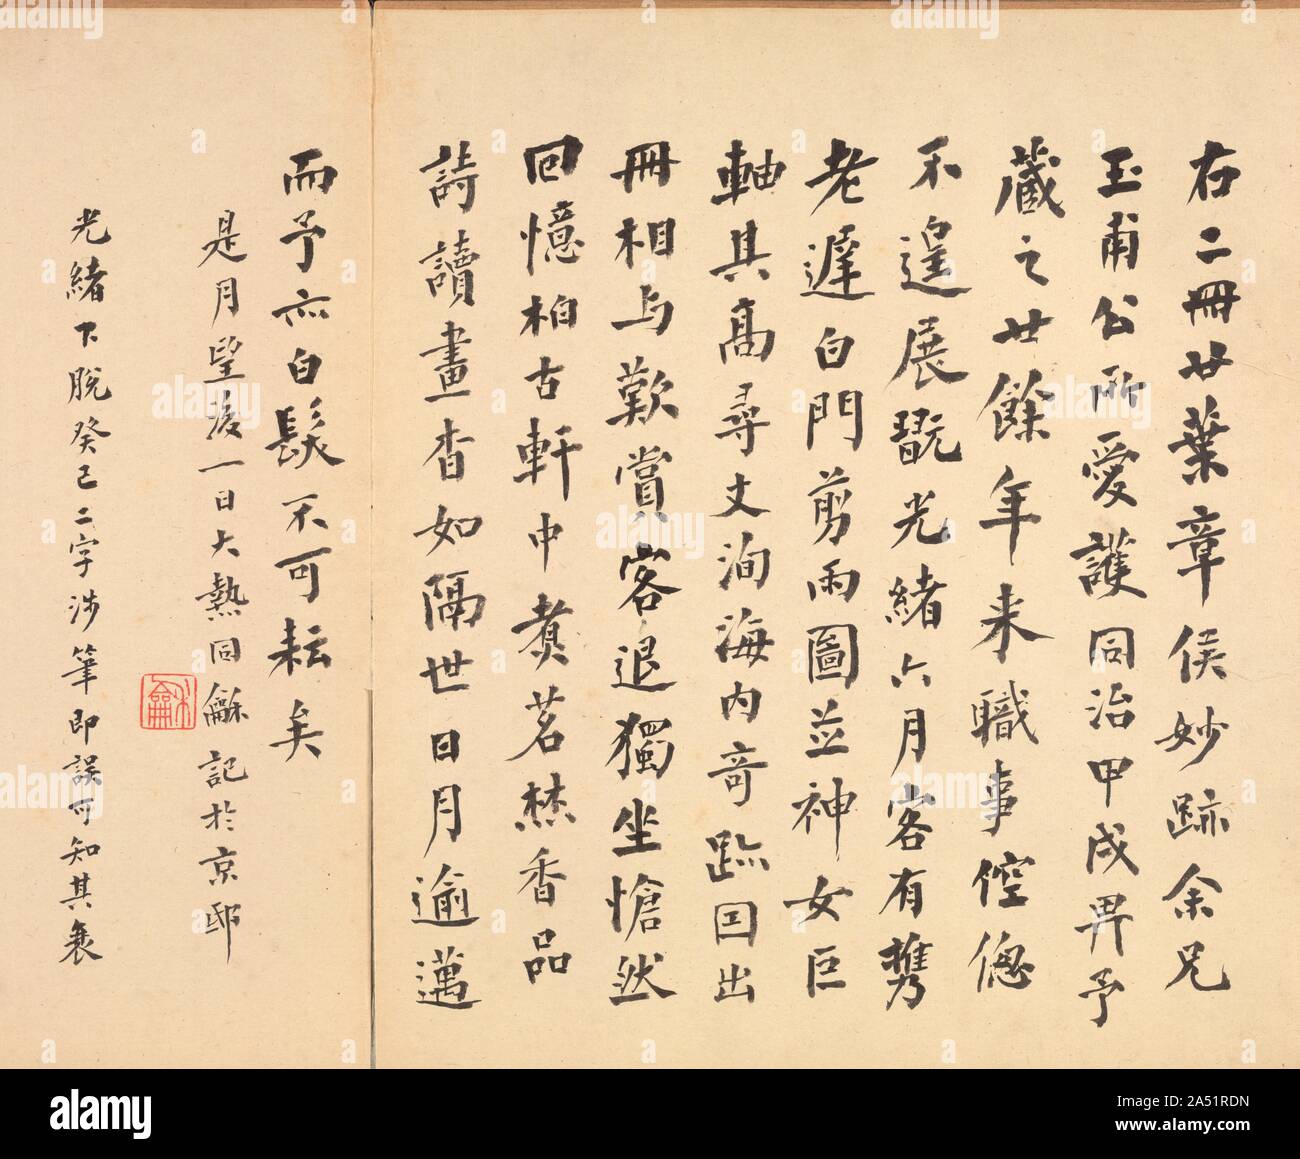 右二冊廿葉章侯妙跡余兄
玉甫公所愛護同治甲戌畀予
藏之廿餘年来職事倥傯
不遑展翫光緒六月客有携
老遲白門剪雨圖並神女巨
軸其高尋丈洵海内奇跡因出
冊相与歎賞客退獨坐愴然
回憶柏古軒中煑茗焚香品
詩讀畫杳如隔世日月逾邁
而予亦白髮不可耘矣
是月望後一日大熱同龢記於京邸
光緒下脫癸巳二字涉筆即誤可知其衰
龢
alamy
Image ID: 2A51RDN
www.alamy.com